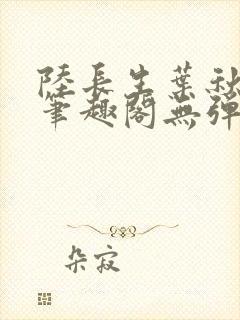 陸長生葉秋
筆趣閣無彈
朵寂